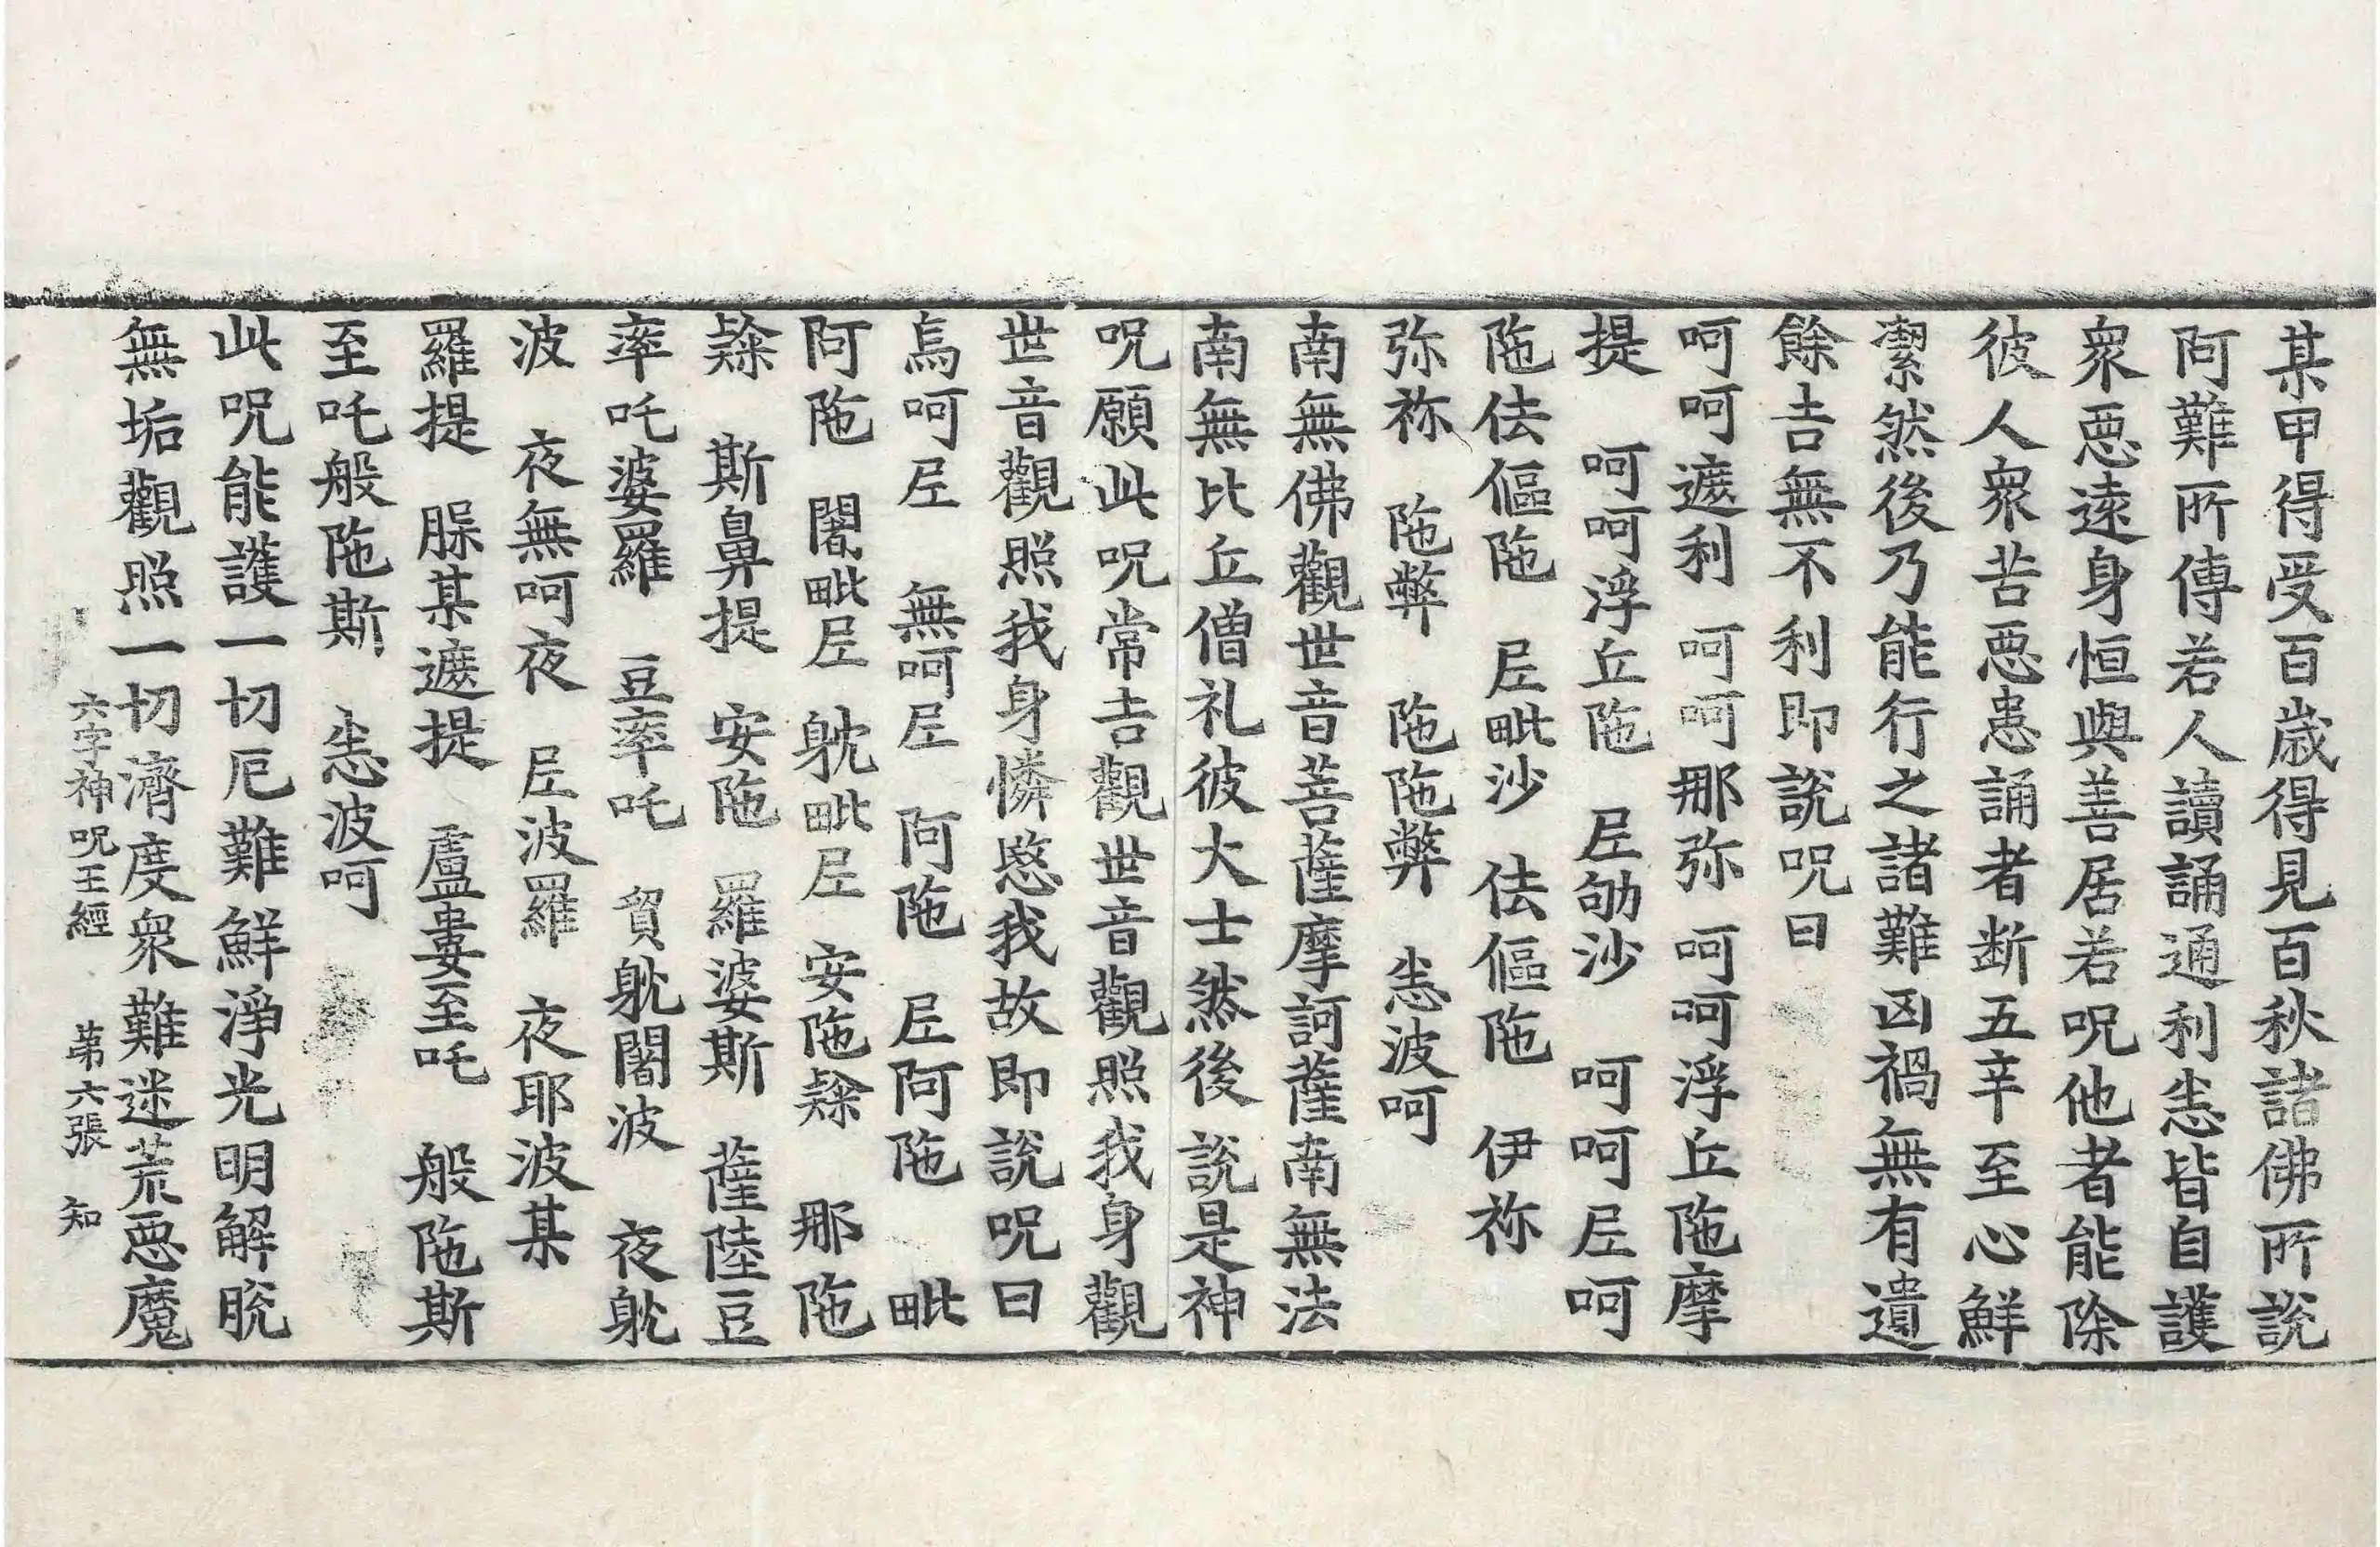 某甲得受百歲得見百秋諸佛所說
阿難所傳若人讀誦通利悉皆自護
衆惡遠身恒與善居若呪他者能除
彼人衆苦惡患誦者断五辛至心鮮
潔然後乃能行之諸難凶禍無有遺
餘吉無不利即說呪曰
呵呵遮利 呵呵那弥 呵呵浮丘陁摩
提 呵呵浮丘陁 𡰱劬沙 呵呵𡰱呵
陁佉傴陁 𡰱毗沙 佉傴陁 伊祢
弥祢 陁弊 陁陁弊 悉波呵
南無佛觀世音菩薩摩訶薩南無法
南無比丘僧礼彼大士然後說是神
呪願此呪常吉觀世音觀照我身觀
世音觀照我身憐愍我故即說呪曰
烏呵𡰱 無呵𡰱 阿陁 𡰱阿陁 毗
阿陁 闍毗𡰱 躭毗𡰱 安陁𨽻 那陁
𨽻 斯鼻提 安陁 羅婆斯 薩陸豆
率吒婆羅 豆率吒 貿躭闍波 夜躭
波 夜無呵夜 𡰱波羅 夜耶波某
羅提 𦛨某遮提 盧婁至吒 般陁斯
至吒般陁斯 悉波呵
此呪能護一切厄難鮮淨光明解脫
無垢觀照一切濟度衆難迷荒惡魔
六字神呪王經 苐六張 知